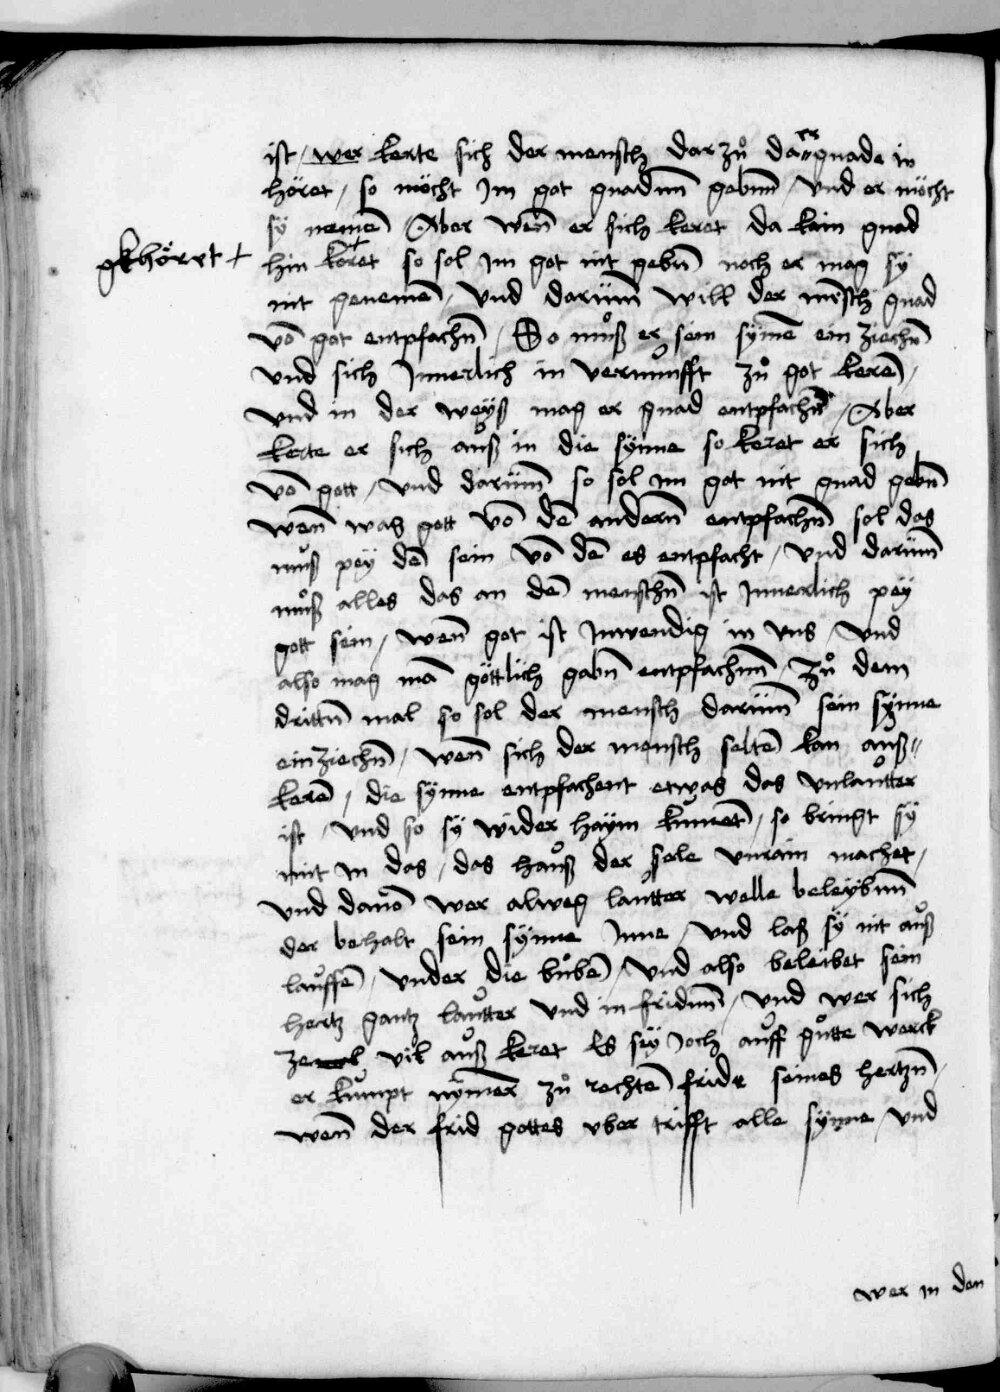 ist / wer kerte sich der mensch dar zuͦ da er gnade in
höret / so möcht Im got gnadnn gebnn / vnd er möcht
sÿ nemē / Aber wen̄ er sich keret da kain gnad
gkhörrt + hin + köret so sol Im got nit gebn̄ noch er mag sÿ
nit genemē / Vnd darüm̄ will der mēsch gnad
vō got entpfachn̄ / So muͦß er sein synne ein ziechn̄
vnd sich Innerlich in vernunfft zuͦ got kerē /
vnd in der weyß mag er gnad entpfachn̄ / Aber
kerte er sich auß in die synne so keret er sich
vō gott / vnd darüm̄ so sol im got nit gnad gebn̄
wen̄ was gott vō dē andern̄ entpfachn̄ sol das
muͦß pey dē sein vō dē es entpfacht / vnd darüm̄
muͦß alles das an dē menschn̄ ist Innerlich pey
gott sein / wen̄ got ist Inwendig in vns / vnd
also mag mā göttlich gabn̄ entpfachnn / Zuͦ dem
drittn̄ mal so sol der mensch darüm̄ sein sÿnne
ein ziechn̄ / wen̄ sich der mensch seltē kan auß„
kerē / die synne entpfachent etwas das vnlautter
ist / vnd so sÿ wider haÿm kumet / so bringt sÿ
mit in das / das hauß der sele vnrain machet /
vnd dauō wer alweg lautter welle beleybnn
der behalt sein synne Inne / vnd laß sÿ nit auß
lauffē / vnder die buͦbē / vnd also beleibet sein
hertz gantz lautter vnd in fridnn / vnd wer sich
ze vil auß keret Es sey Joch auff guͦtte werck
er kumpt nÿmer zuͦ rechtē fride seines hertzn̄ /
wen̄ der frid gottes vber trifft alle synne / vnd
wer in den